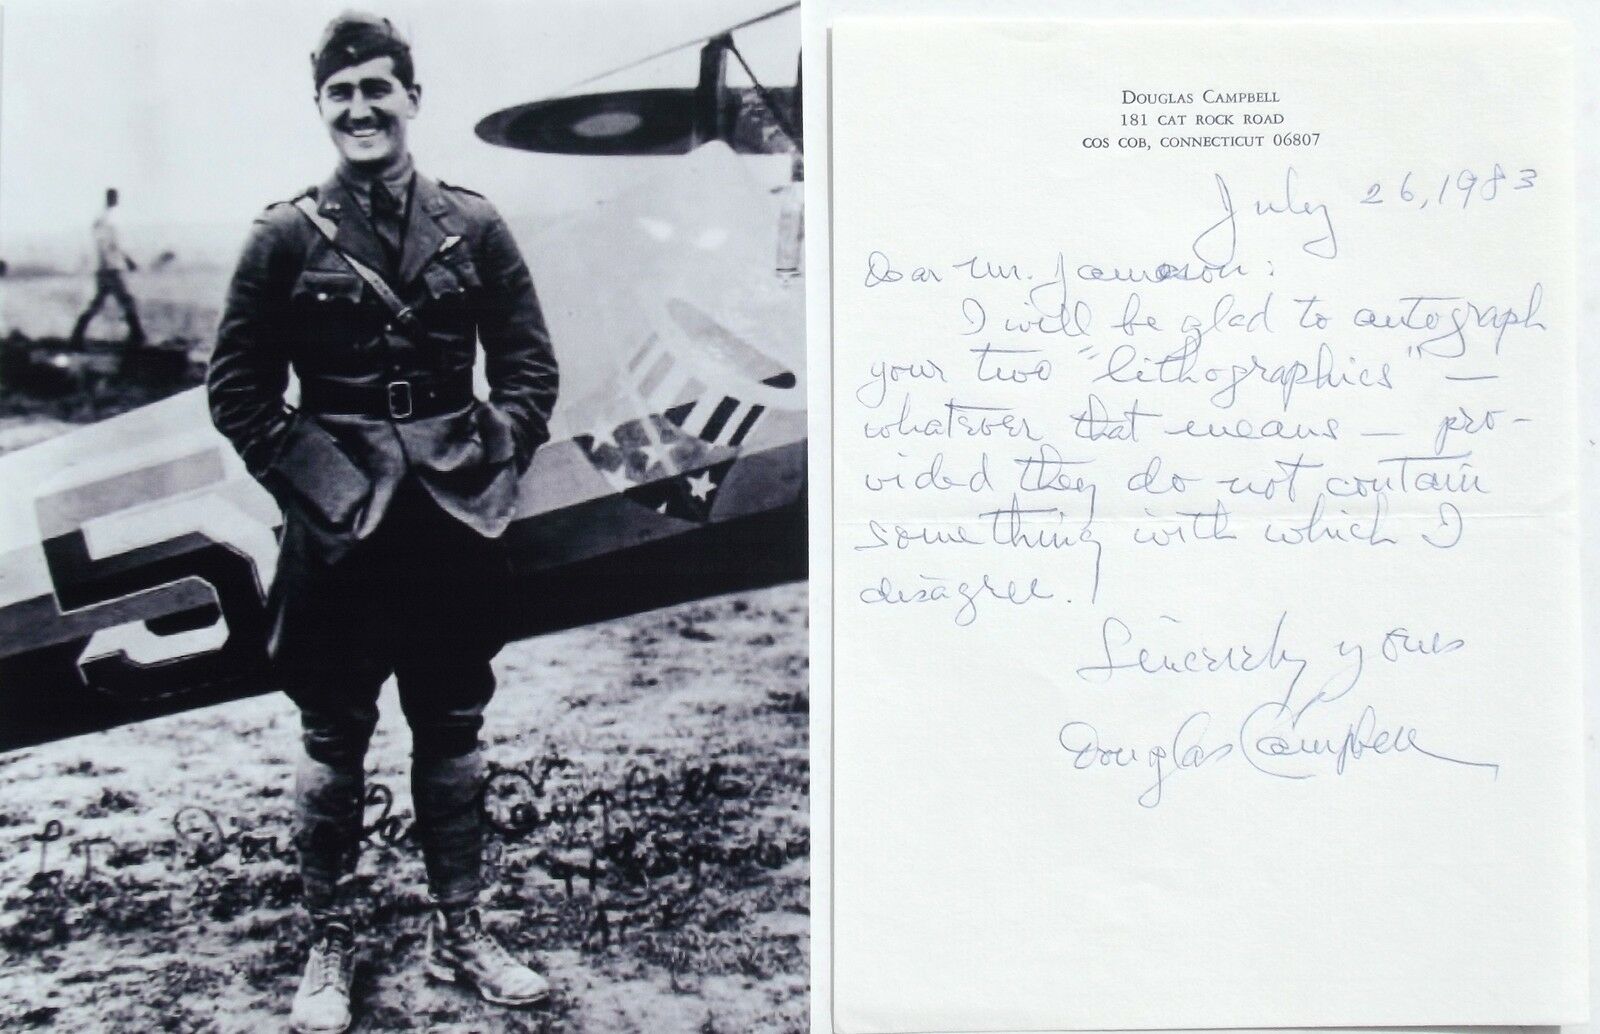 5
Lt. Douglas Campbell
94th Squadron
DOUGLAS CAMPBELL
181 CAT ROCK ROAD
COS COB, CONNECTICUT 06807
July 26, 1983
Dear Mr. Jameson:
I will be glad to autograph
your two "lithographics" —
whatever that means — pro-
vided they do not contain
something with which I
disagree.
Sincerely yours
Douglas Campbell